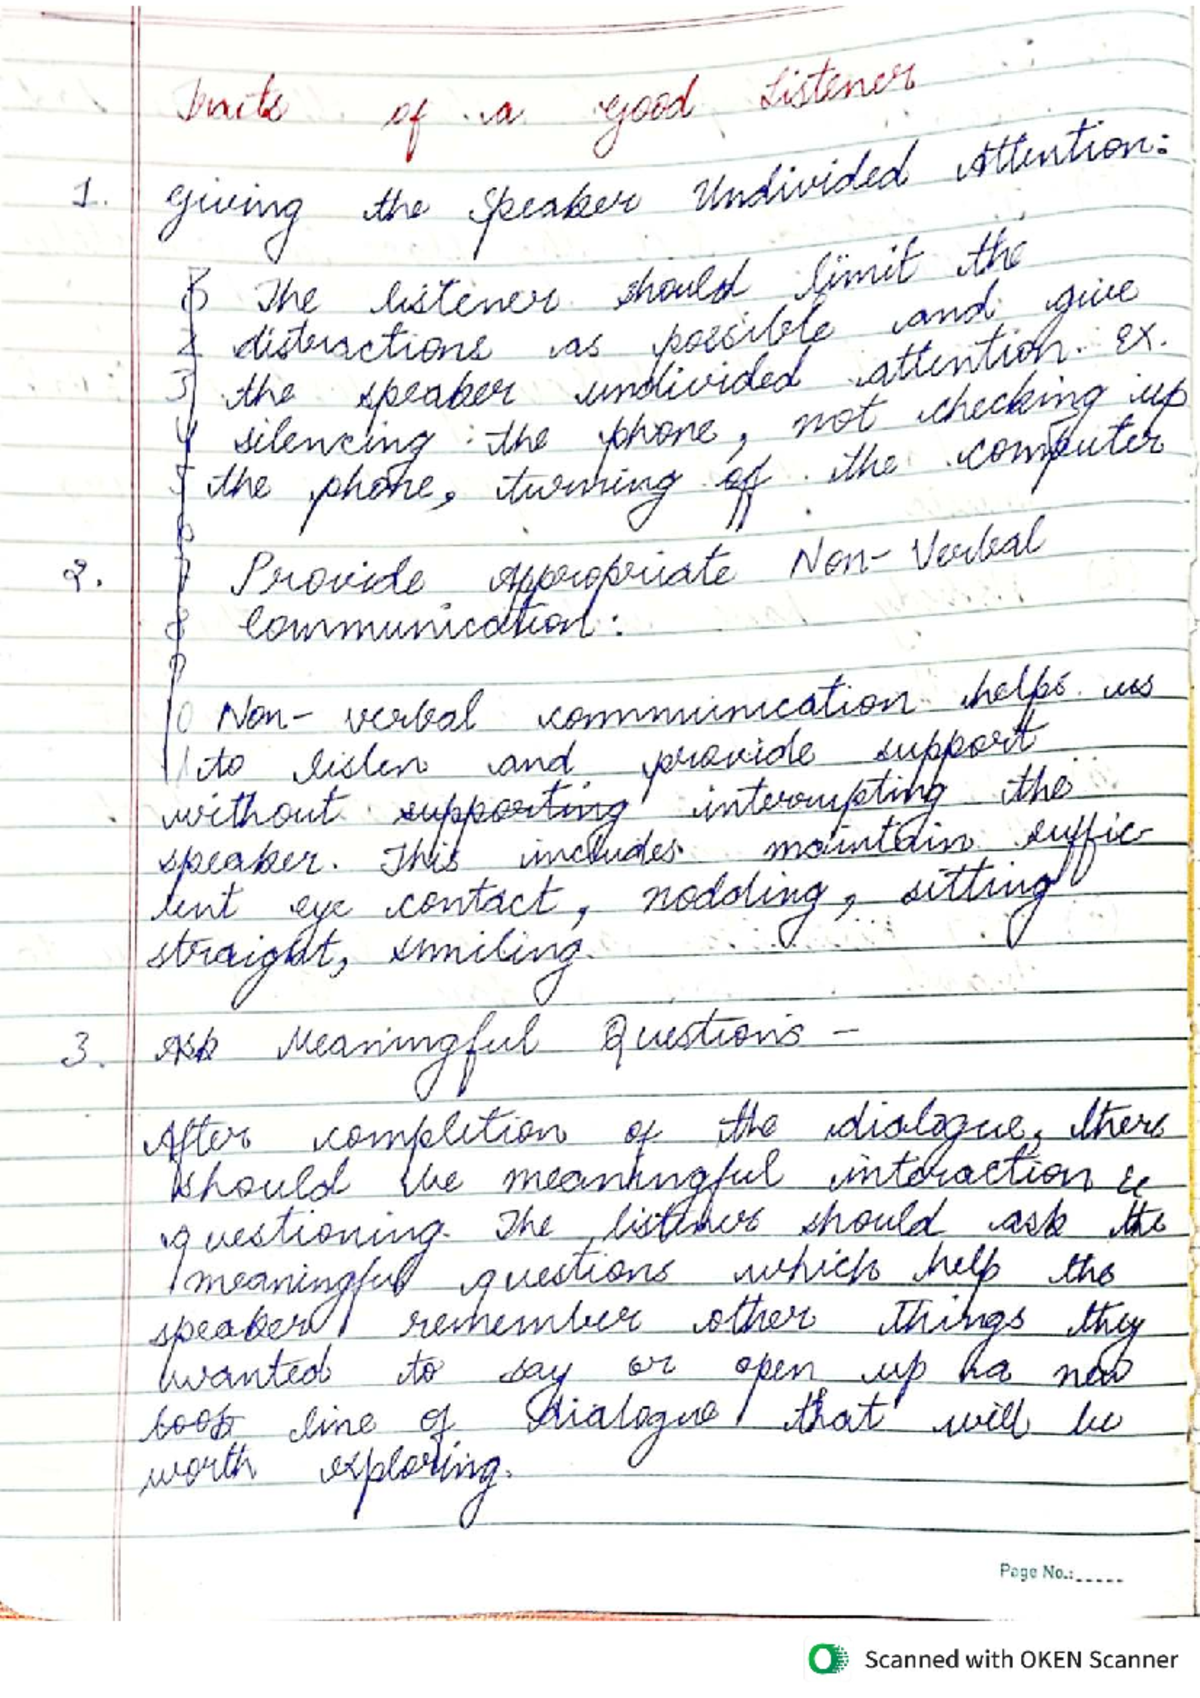 Traits of a Good Listener
1. Giving the Speaker Undivided Attention:
The listener should limit the
2 distractions as possible and give
3 the speaker undivided attention. Ex.
4 silencing the phone, not checking up
5 the phone, turning off the computer
6
2. 7 Provide Appropriate Non-Verbal
8 Communication:
9
10 Non-verbal communication helps us
11 to listen and provide support
without supporting interrupting the
speaker. This includes maintain suffic-
ient eye contact, nodding, sitting
straight, smiling.
3. Ask Meaningful Questions -
After completion of the dialogue, there
should be meaningful interaction &
questioning. The listener should ask the
meaningful questions which help the
speaker remember other things they
wanted to say or open up a new
line of dialogue that will be
worth exploring.
Page No.:_____
Scanned with OKEN Scanner